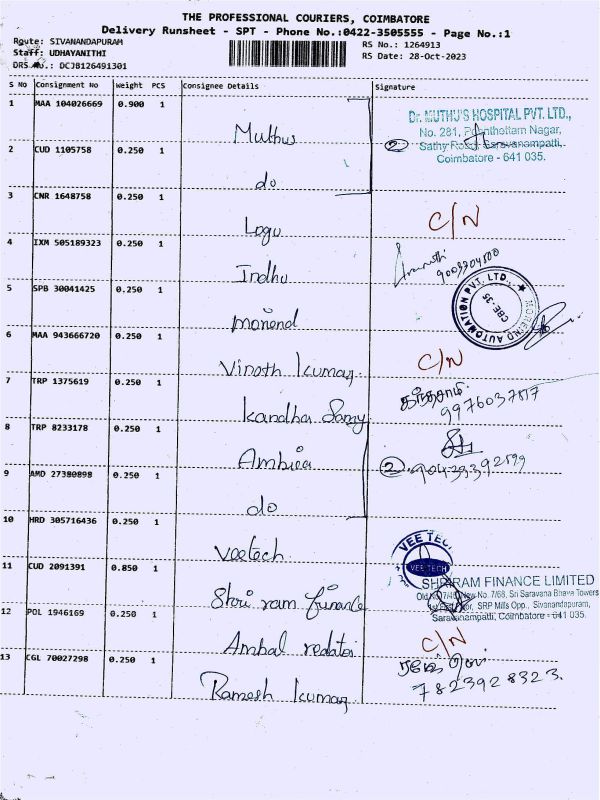 THE PROFESSIONAL COURIERS, COIMBATORE
Delivery Runsheet - SPT - Phone No.:0422-3505555 - Page No.:1
Route: SIVANANDAPURAM
RS No.: 1264913
Staff: UDHAYANITHI
RS Date: 28-Oct-2023
DRS No.: DCJB126491301
S No Consignment No Weight PCS Consignee Details Signature
1 MAA 104026669 0.900 1 Muthus
Dr. MUTHU'S HOSPITAL PVT. LTD.,
No. 281, Nagar,
Sathy Road, Saravanampatti,
Coimbatore - 641 035.
2
2 CUD 1105758 0.250 1 do
3 CNR 1648758 0.250 1 Logu C/N
4 IXM 505189323 0.250 1 Indhu
5 SPB 30041425 0.250 1
AUTOMATION PVT. LTD.,
CBE-35
6 MAA 943666720 0.250 1 Vinoth kumar C/N
7 TRP 1375619 0.250 1 kandha Samy
8 TRP 8233178 0.250 1 Ambica
2
9 AMD 27380898 0.250 1 do
10 HRD 305716436 0.250 1 Veetech
VEE TECH
VEE TECH
11 CUD 2091391 0.850 1 Shri ram finance
SHRIRAM FINANCE LIMITED
New No. 7/68, Sri Saravana Bhava Towers
SRP Mills Opp., Sivanandapuram,
Saravanampatti, Coimbatore - 641 035.
12 POL 1946169 0.250 1 Ambal C/N
13 CGL 70027298 0.250 1 Ramesh kumar
7823928323.